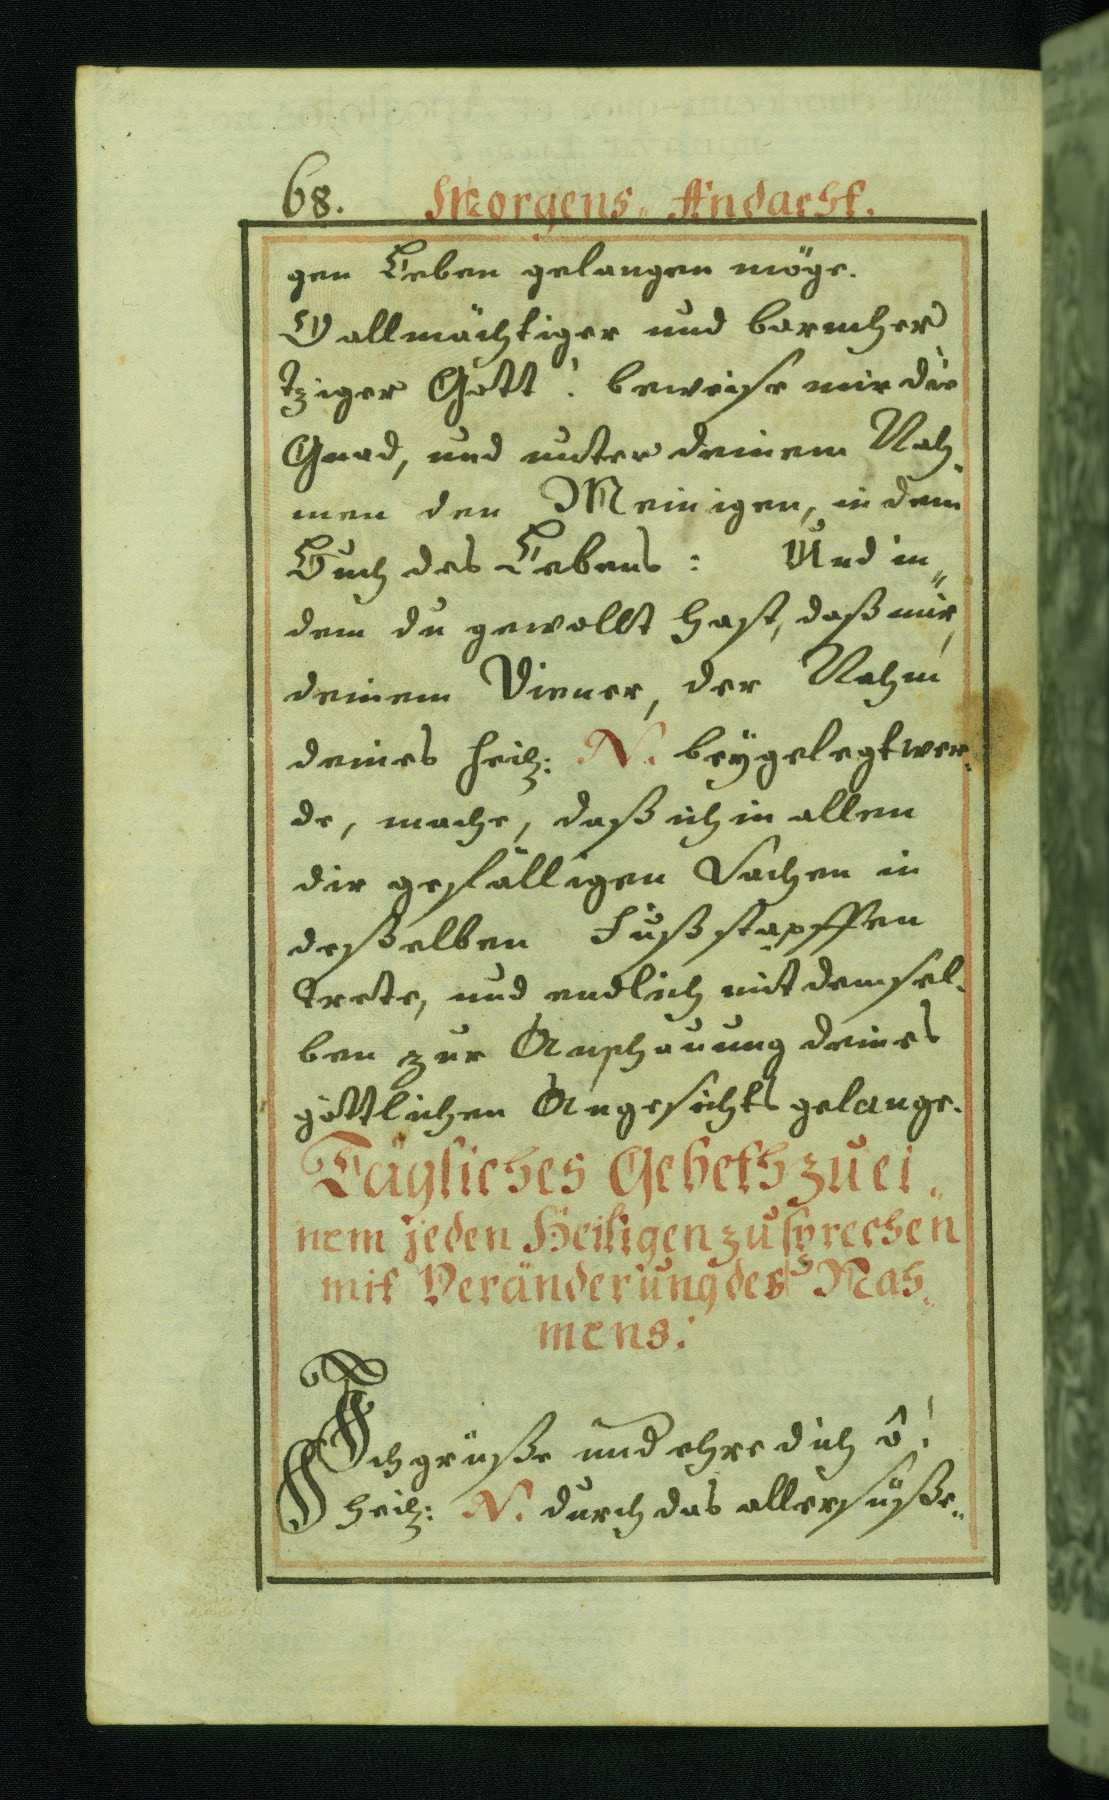 68. Morgens„ Andacht.
gen Leben gelangen möge.
O allmächtiger und barmher„
tziger Gott! beweise mir die
Gnad, und unter deinem Nah„
men den Meinigen, in dem
Buch des Lebens: Und in„
dem du gewollt hast, daß mir,
deinem Diener, der Nahm
deines heil: N. beÿgelegt wer„
de, mache, daß ich in allen
dir gefälligen Sachen in
deßelben Fußstapffen
trete, und endlich mit demsel„
ben zur Anschauung deines
göttlichen Angesichts gelange.
Tägliches Gebeth zu ei„
nem jeden Heiligen zu sprechen
mit Veränderung des Nah„
mens:
Ich grüße und ehre dich ô!
heil: N. durch das allersüße„